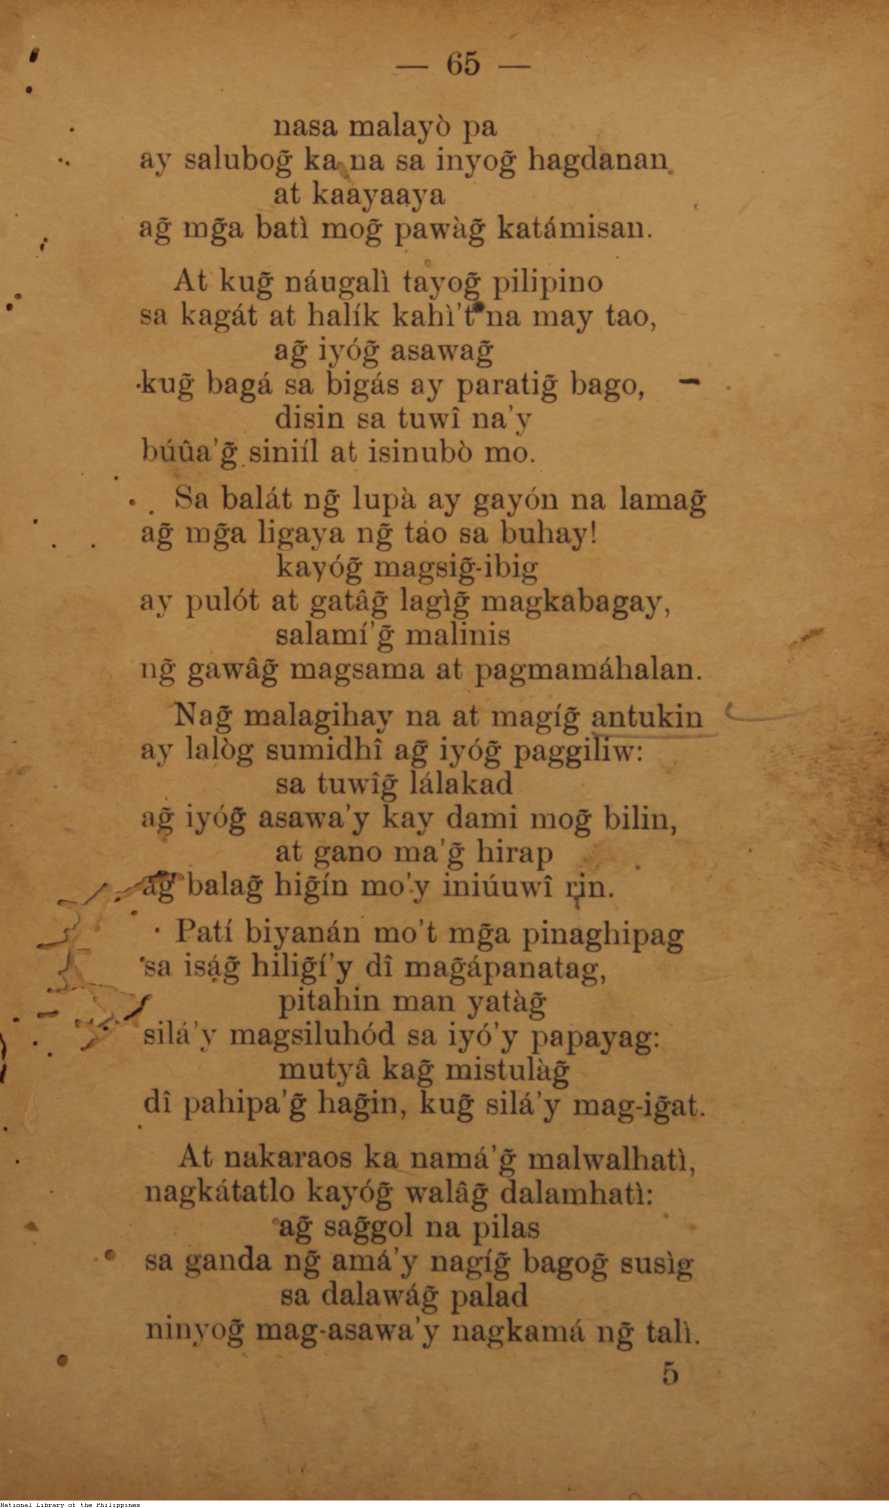 — 65 —
nasa malayò pa
ay salubog̃ ka na sa inyog̃ hagdanan
at kaayaaya
ag̃ mg̃a batì mog̃ pawàg̃ katámisan.
At kug̃ náugalì tayog̃ pilipino
sa kagát at halík kahì't na may tao,
ag̃ iyóg̃ asawag̃
kug̃ bagá sa bigás ay paratig̃ bago,
disin sa tuwî na'y
búûa'g̃ siniíl at isinubò mo.
Sa balát ng̃ lupà ay gayón na lamag̃
ag̃ mg̃a ligaya ng̃ tao sa buhay!
kayóg̃ magsig̃-ibig
ay pulót at gatâg̃ lagìg̃ magkabagay,
salamí'g̃ malinis
ng̃ gawâg̃ magsama at pagmamáhalan.
Nag̃ malagihay na at magíg̃ antukin
ay lalòg sumidhî ag̃ iyóg̃ paggiliw:
sa tuwîg̃ lálakad
ag̃ iyóg̃ asawa'y kay dami mog̃ bilin,
at gano ma'g̃ hirap
ag̃ balag̃ hig̃ín mo'y iniúuwî rin.
Patí biyanán mo't mg̃a pinaghipag
sa iság̃ hilig̃í'y dî mag̃ápanatag,
pitahin man yatàg̃
silá'y magsiluhód sa iyó'y papayag:
mutyâ kag̃ mistulàg̃
dî pahipa'g̃ hag̃in, kug̃ silá'y mag-ig̃at.
At nakaraos ka namá'g̃ malwalhatì,
nagkátatlo kayóg̃ walâg̃ dalamhatì:
ag̃ sag̃gol na pilas
sa ganda ng̃ amá'y nagíg̃ bagog̃ susìg
sa dalawág̃ palad
ninyog̃ mag-asawa'y nagkamá ng̃ talì.
5
National Library of the Philippines